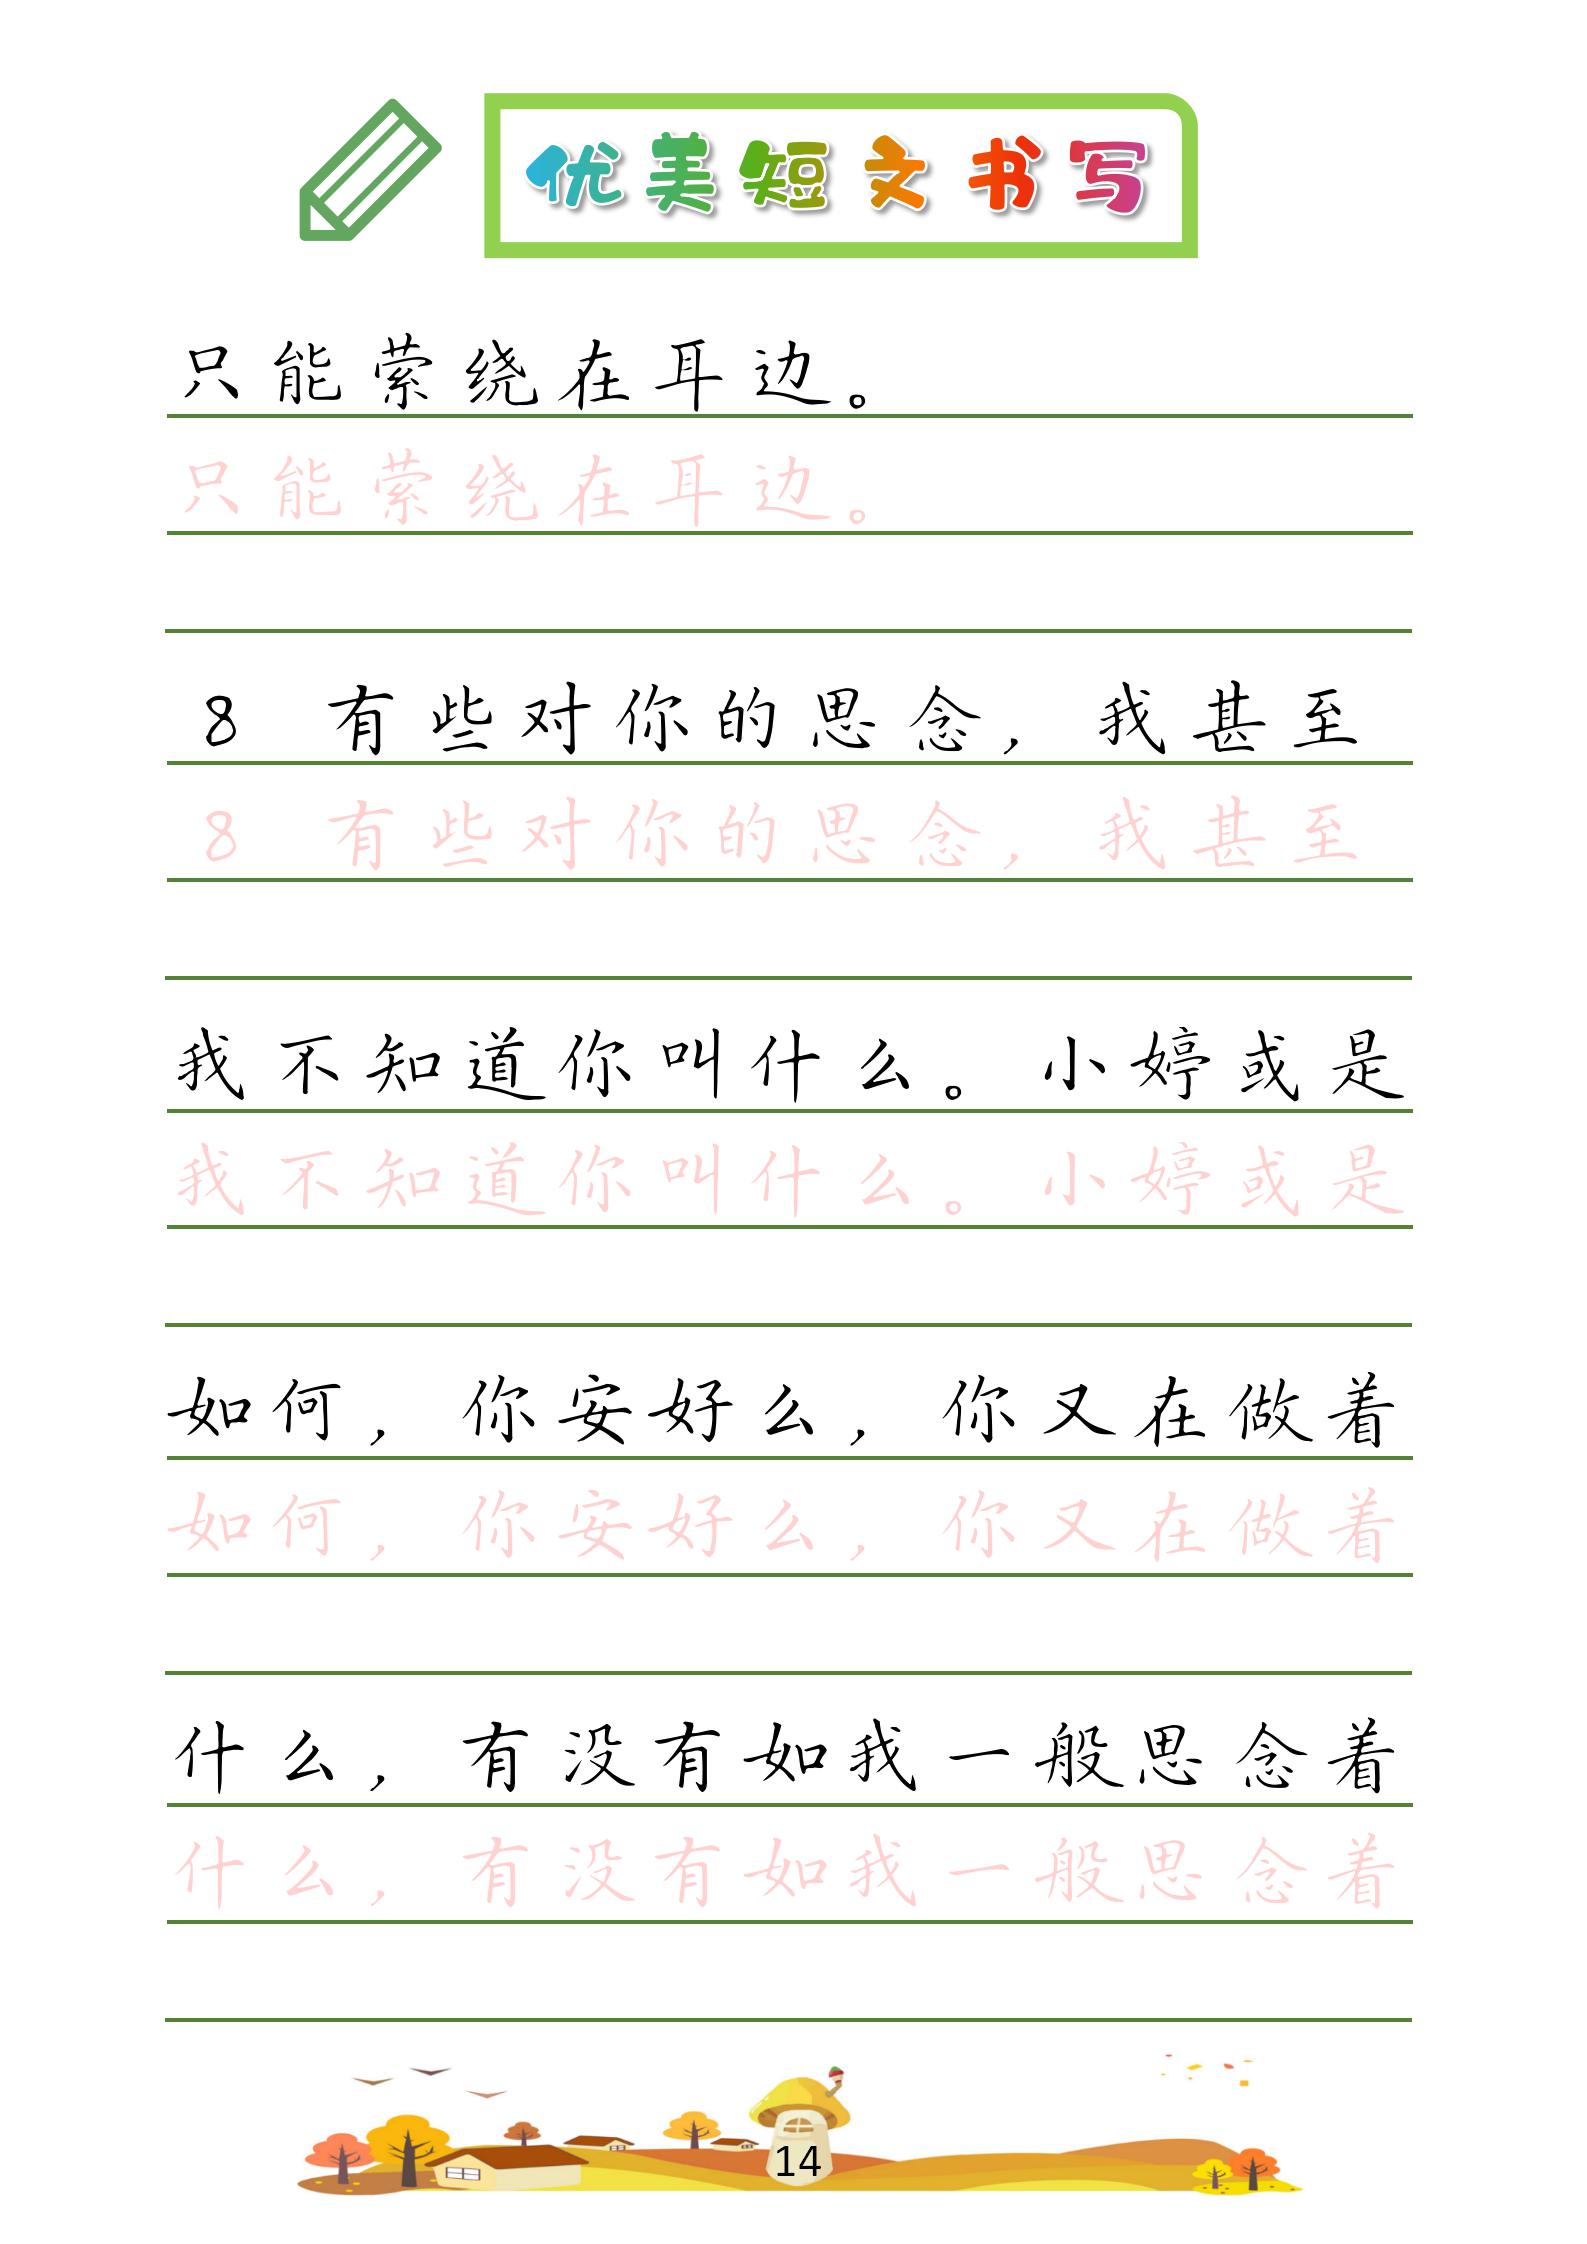 优美短文书写
只能萦绕在耳边。
只能萦绕在耳边。
8 有些对你的思念，我甚至
8 有些对你的思念，我甚至
我不知道你叫什么。小婷或是
我不知道你叫什么。小婷或是
如何，你安好么，你又在做着
如何，你安好么，你又在做着
什么，有没有如我一般思念着
什么，有没有如我一般思念着
14